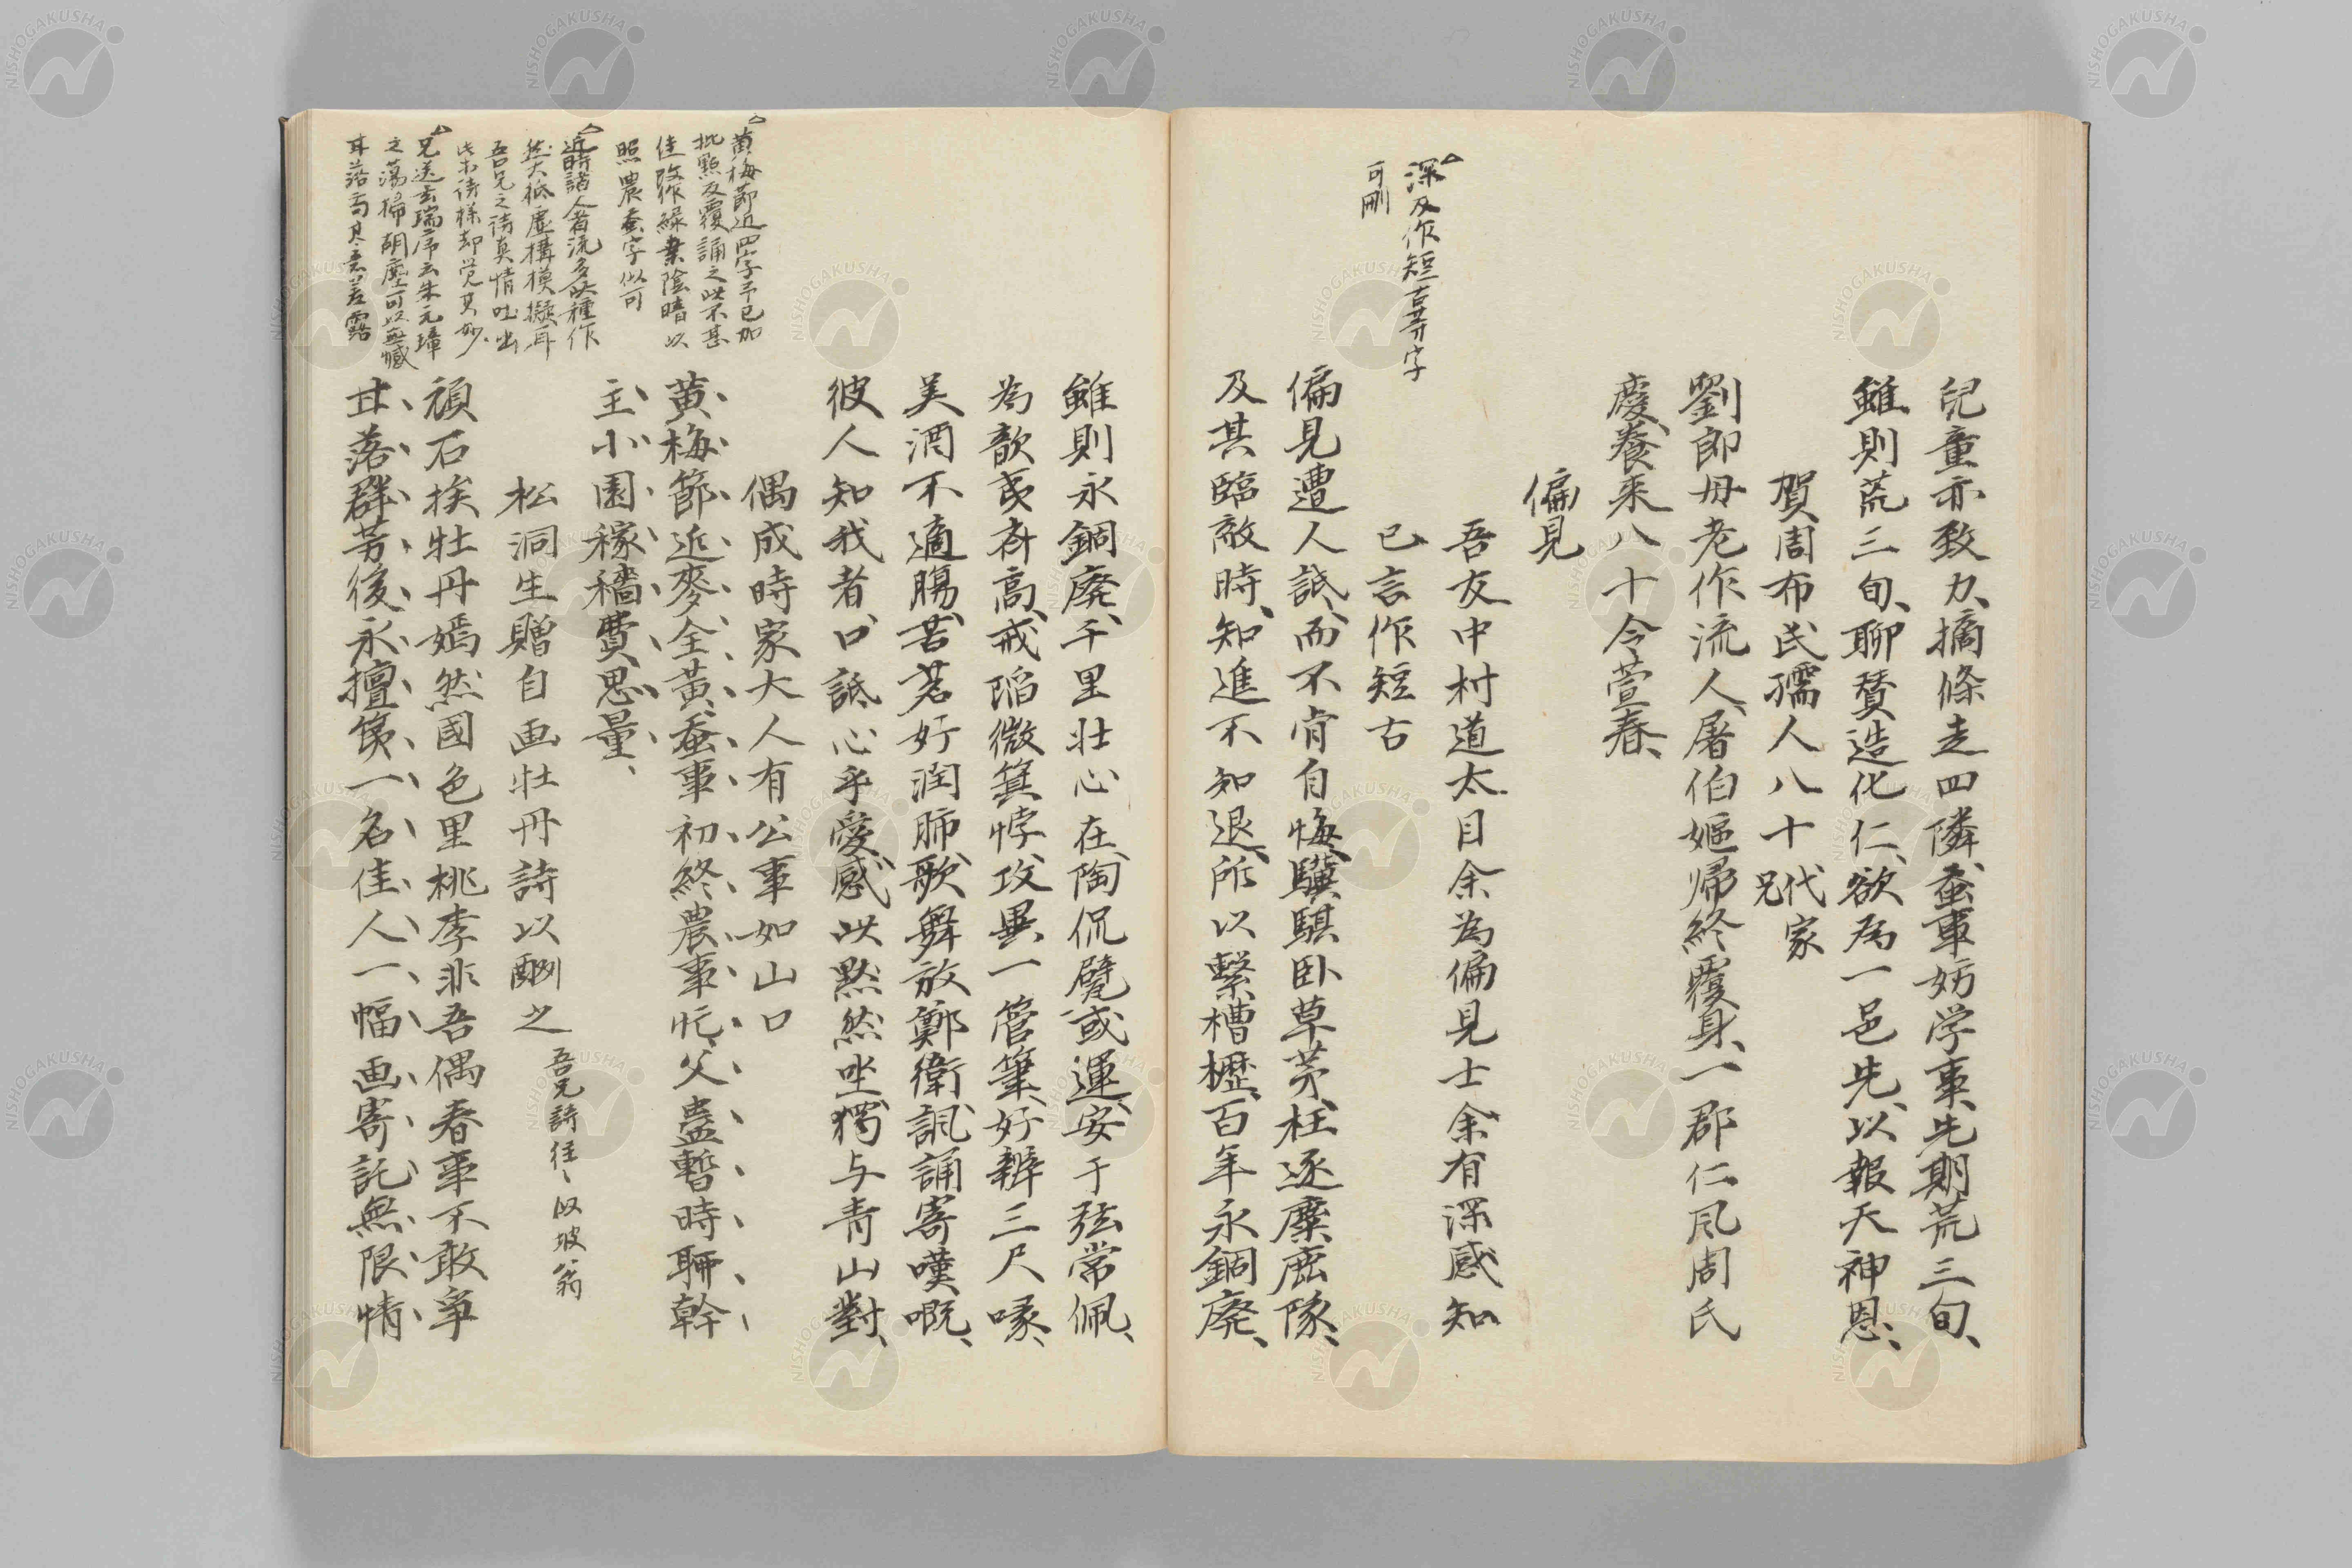 兒童亦致力、摘條走四隣、蚕事妨学事、先期荒三旬、
雖則荒三旬、聊賛造化仁、欲為一邑先、以報天神恩、
賀周布氏孺人八十代家兄
劉郎毋老作流人、屠伯嫗帰終覆身、一郡仁風周氏
慶、養来八十今萱春、
偏見
吾友中村道太目余為偏見士余有深感知
已言作短古
深及作短古等字
可刪
偏見遭人詆、而不肯自悔、驥騏臥草茅、枉逐麋鹿隊、
及其臨敵時、知進不知退、所以繋槽櫪、百年永錮廃、
雖則永錮廃、千里壮心在、陶侃甓或運、安于弦常佩、
為歆夷斉高、戒陥微箕悖、攻異一管筆、好辨三尺喙、
美酒不適腸、苦茗好潤肺、歌舞放鄭衛、諷誦寄嘆嘅、
彼人知我者、口詆心乎愛、感此黙然坐、獨与青山對、
偶成時家大人有公事如山口
黄梅節近麥全黄、蚕事初終農事忙、父蠱暫時聊幹
主、小園稼穡費思量、
黄梅節近四字予已加
批點及覆誦之此不甚
佳改作緑葉陰暗以
照農蚕字似可
松洞生贈自画牡丹詩以酬之
吾兄詩往、以坡翁
近時諸人者流多此種作
然大抵虚構模擬耳
吾兄之詩真情吐出
頑石挨牡丹嫣然國色里桃李非吾偶春事不敢爭
甘落群芳後、永擅矦一名佳人一幅画寄託無限情
兄送玄瑞序云朱元璋
之蕩掃胡塵可以無憾
甘落句其意差露